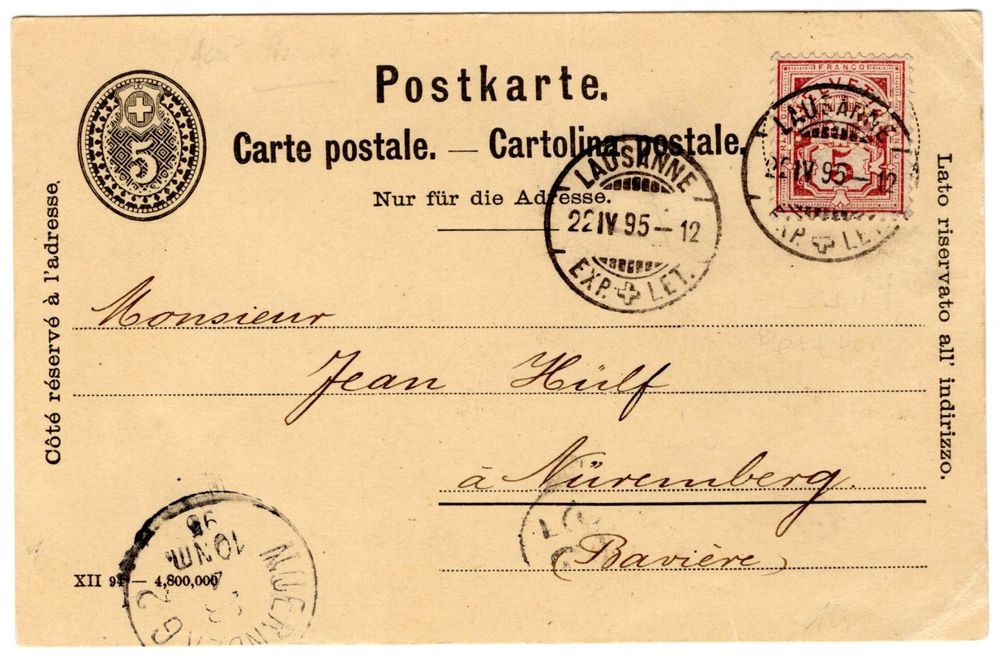 5
Postkarte.
Carte postale. — Cartolina postale.
Nur für die Adresse.
FRANCO
5
LAUSANNE
22 IV 95 — 12
EXP. LET.
LAUSANNE
22 IV 95 — 12
EXP. LET.
Côté réservé à l'adresse.
Lato riservato all' indirizzo.
Monsieur
Jean Hülf
à Nüremberg.
(Bavière)
XII 94 — 4,800,000
NUERNBERG 2
10 NM.
95